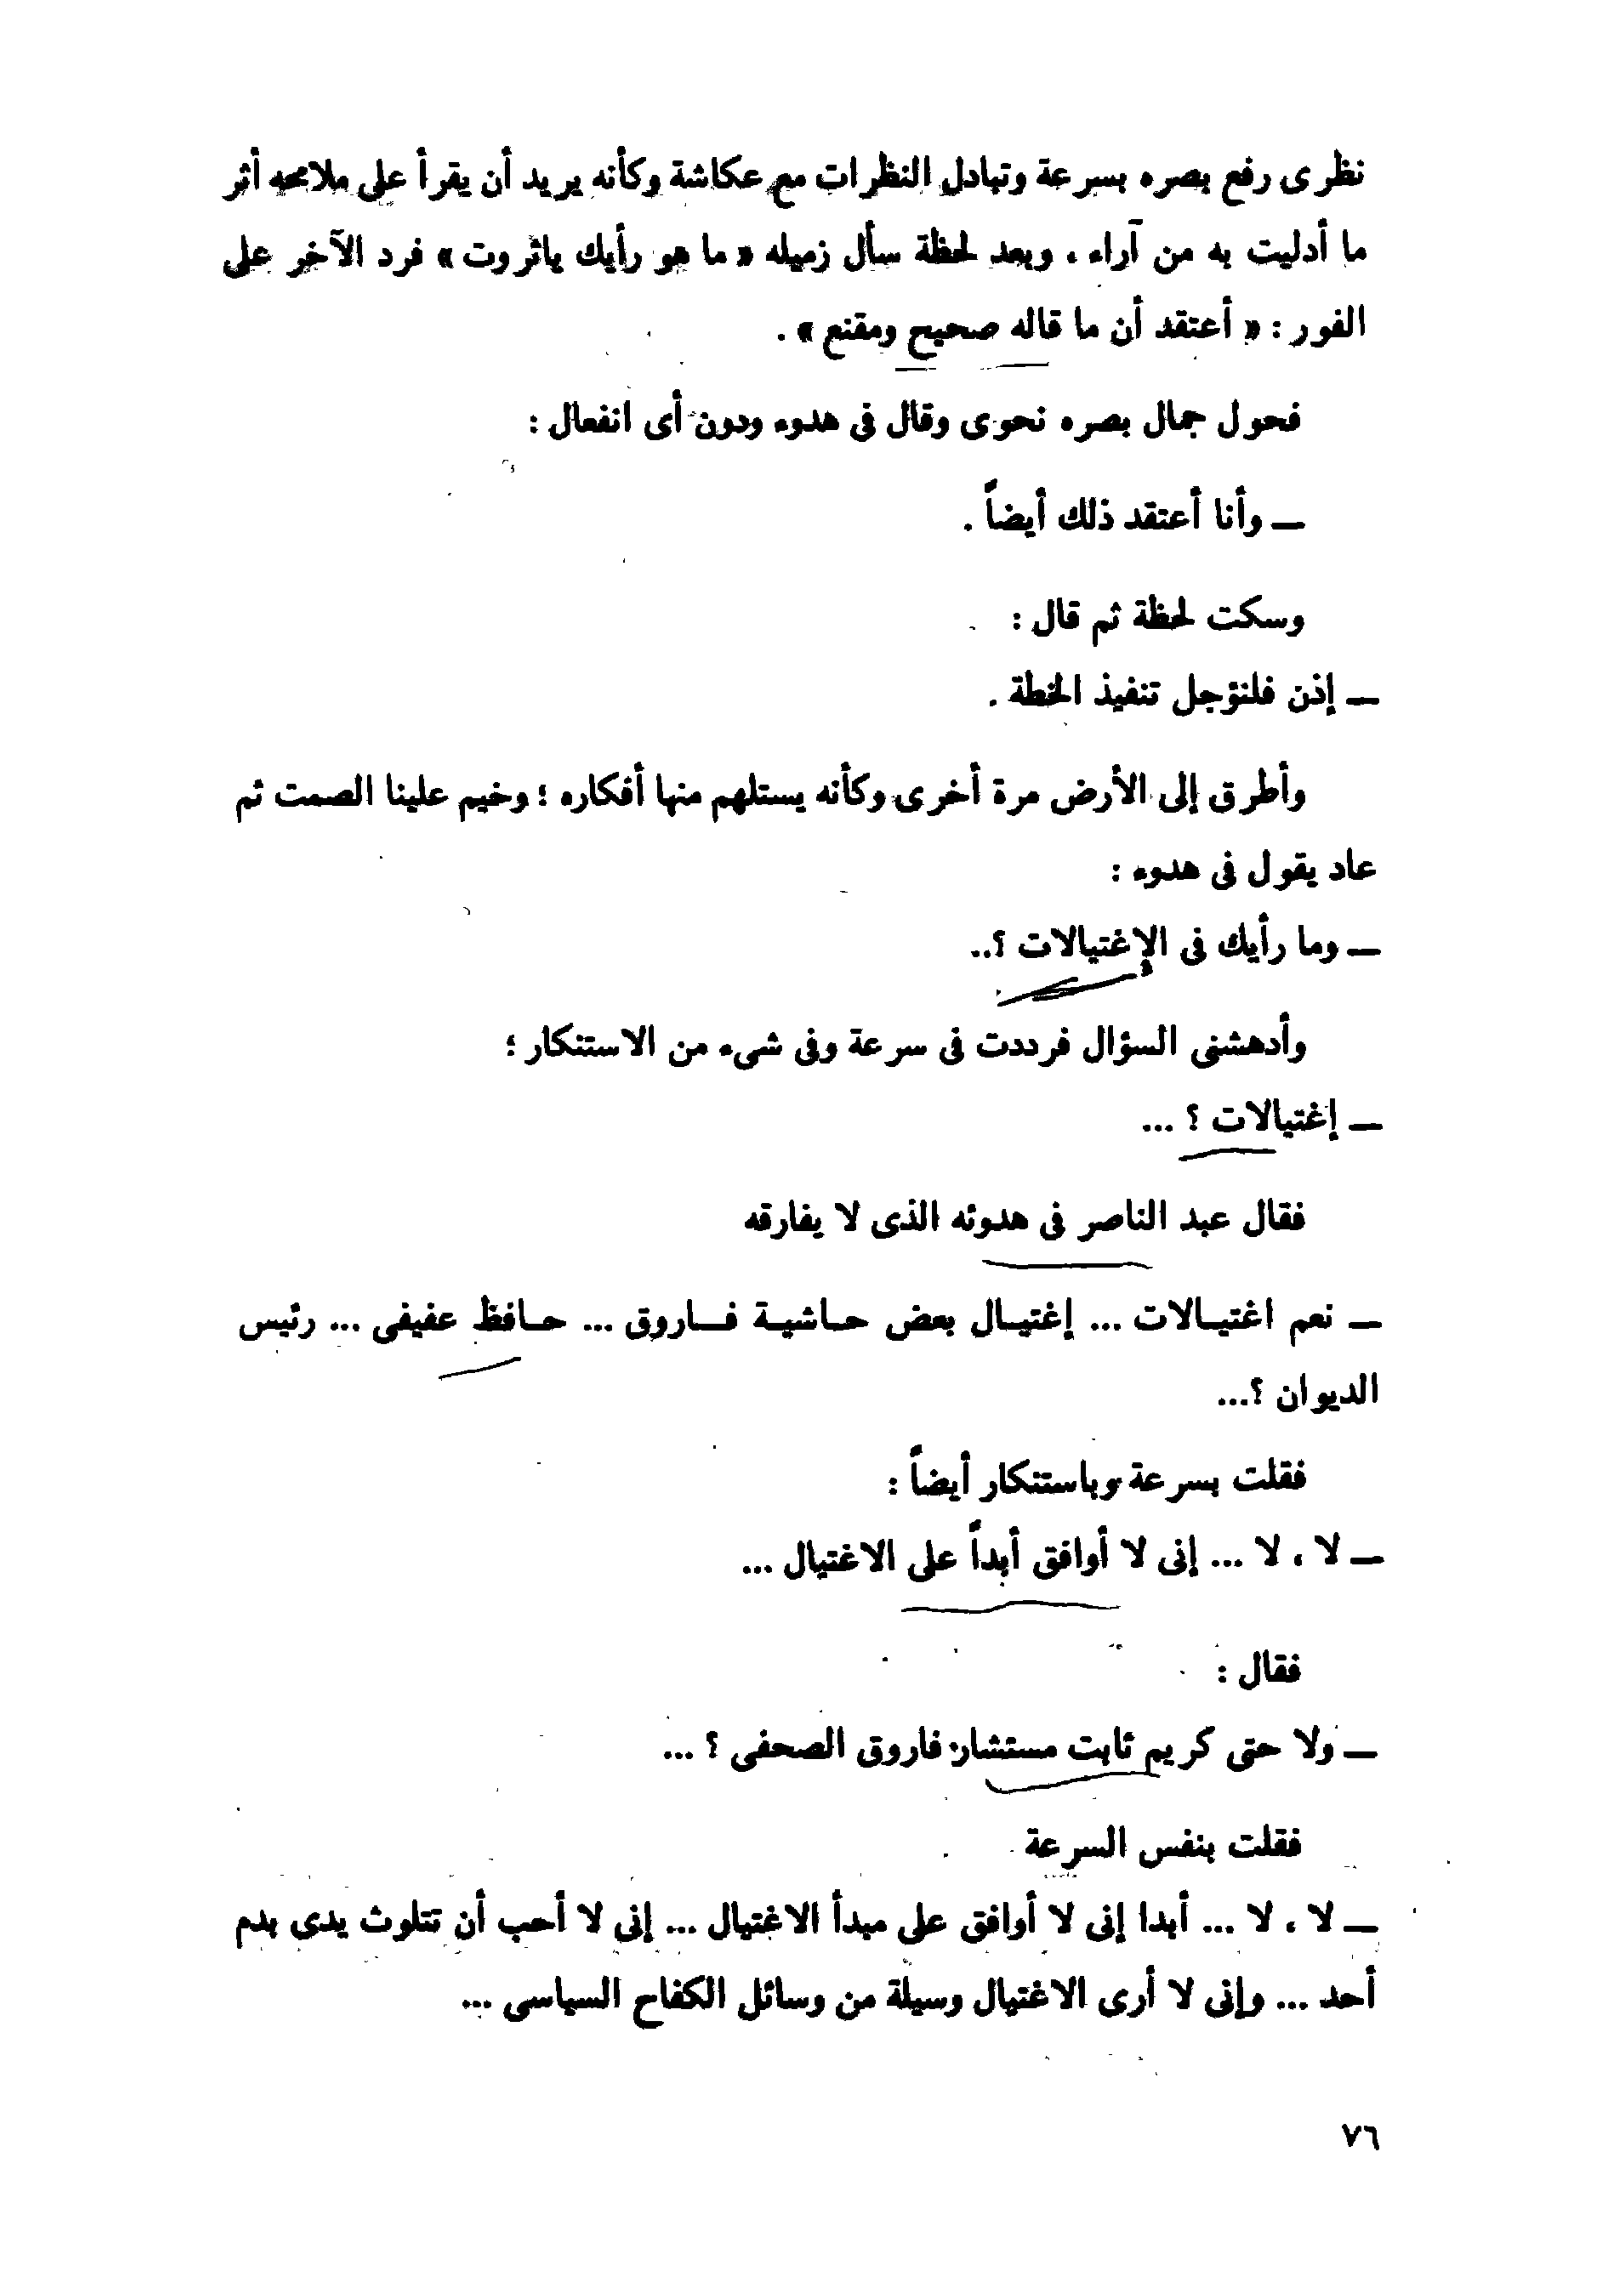 نظرى رفع بصره بسرعة وتبادل النظرات مع عكاشة وكأنه يريد أن يقرأ على ملامحه أثر
ما أدليت به من آراء ، وبعد لحظة سأل زميله « ما هو رأيك ياثروت » فرد الآخر على
الفور : « أعتقد أن ما قاله صحيح ومقنع » .
فحول جمال بصره نحوى وقال فى هدوء ودون أى انفعال :
— وأنا أعتقد ذلك أيضاً .
وسكت لحظة ثم قال :
— إذن فلنؤجل تنفيذ الخطة .
وأطرق إلى الأرض مرة أخرى وكأنه يستلهم منها أفكاره ؛ وخيم علينا الصمت ثم
عاد يقول فى هدوء :
— وما رأيك فى الإغتيالات ؟..
وأدهشنى السؤال فرددت فى سرعة وفى شىء من الاستنكار ؛
— إغتيالات ؟ ...
فقال عبد الناصر فى هدوئه الذى لا يفارقه
— نعم اغتيـالات ... إغتيـال بعض حـاشيـة فـاروق ... حـافظ عفيفى ... رئيس
الديوان ؟...
فقلت بسرعة وباستنكار أيضاً :
— لا ، لا ... إنى لا أوافق أبداً على الاغتيال ...
فقال :
— ولا حتى كريم ثابت مستشار فاروق الصحفى ؟ ...
فقلت بنفس السرعة
— لا ، لا ... أبدا إنى لا أوافق على مبدأ الاغتيال ... إنى لا أحب أن تتلوث يدى بدم
أحد ... وإنى لا أرى الاغتيال وسيلة من وسائل الكفاح السياسى ...
٧٦